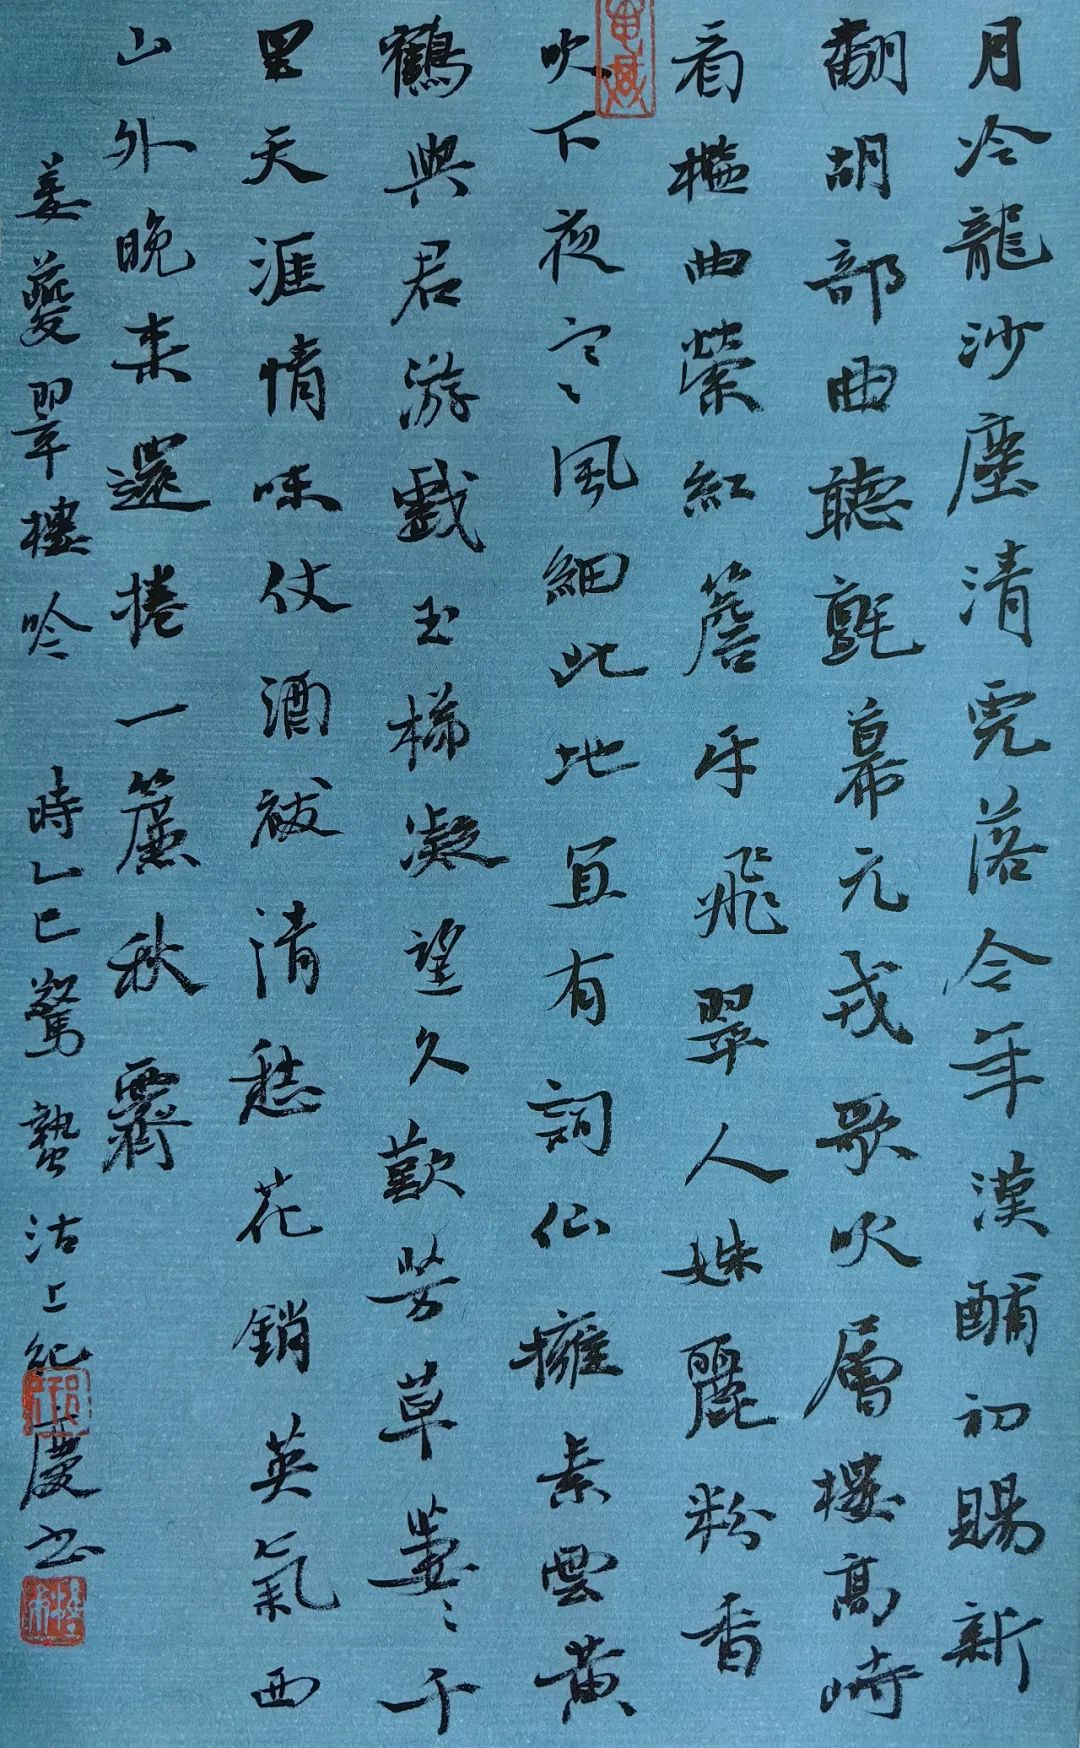 月冷龍沙塵清虎落今年漢酺初賜新
翻胡部曲聽氈幕元戎歌吹層樓高峙
看檻曲縈紅簷牙飛翠人姝麗粉香
吹下夜寒風細此地宜有詞仙擁素雲黃
鶴與君游戲玉梯凝望久歎芳草萋〻千
里天涯情味仗酒祓清愁花銷英氣西
山外晚來還捲一簾秋霽
姜夔翠樓吟 時乙巳驚蟄沽上紀慶書